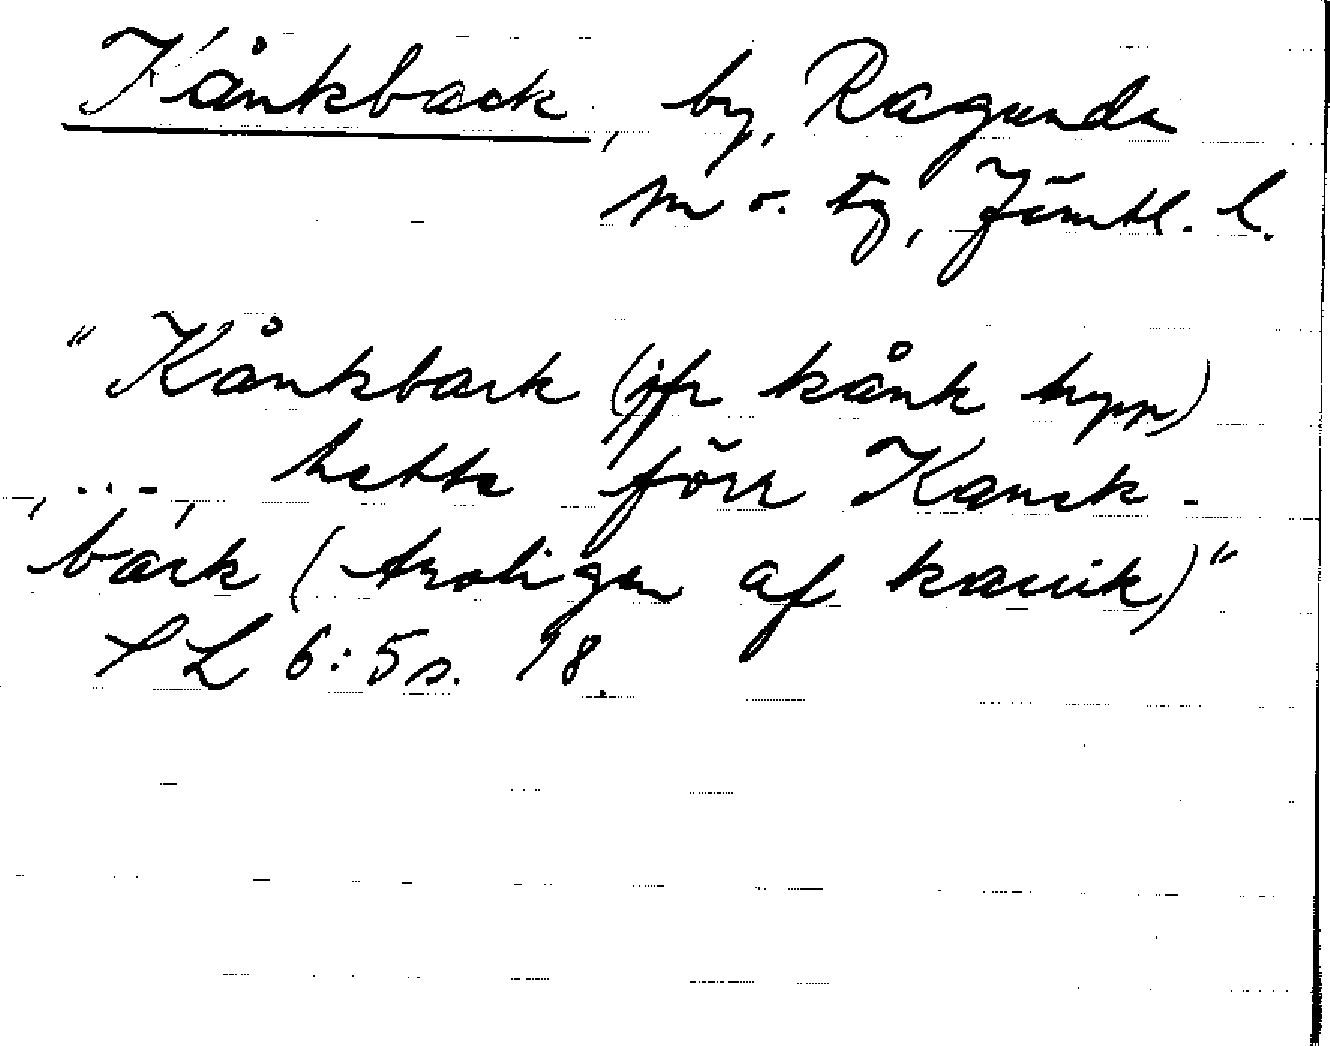 Kånkback, by, Ragunda
sn o. tg, Jämtl. l.
"Kånkback (jfr kånk
, ..., hette förr Kanck-
back (troligen af kanik)"
SL 6:5 s. 18.